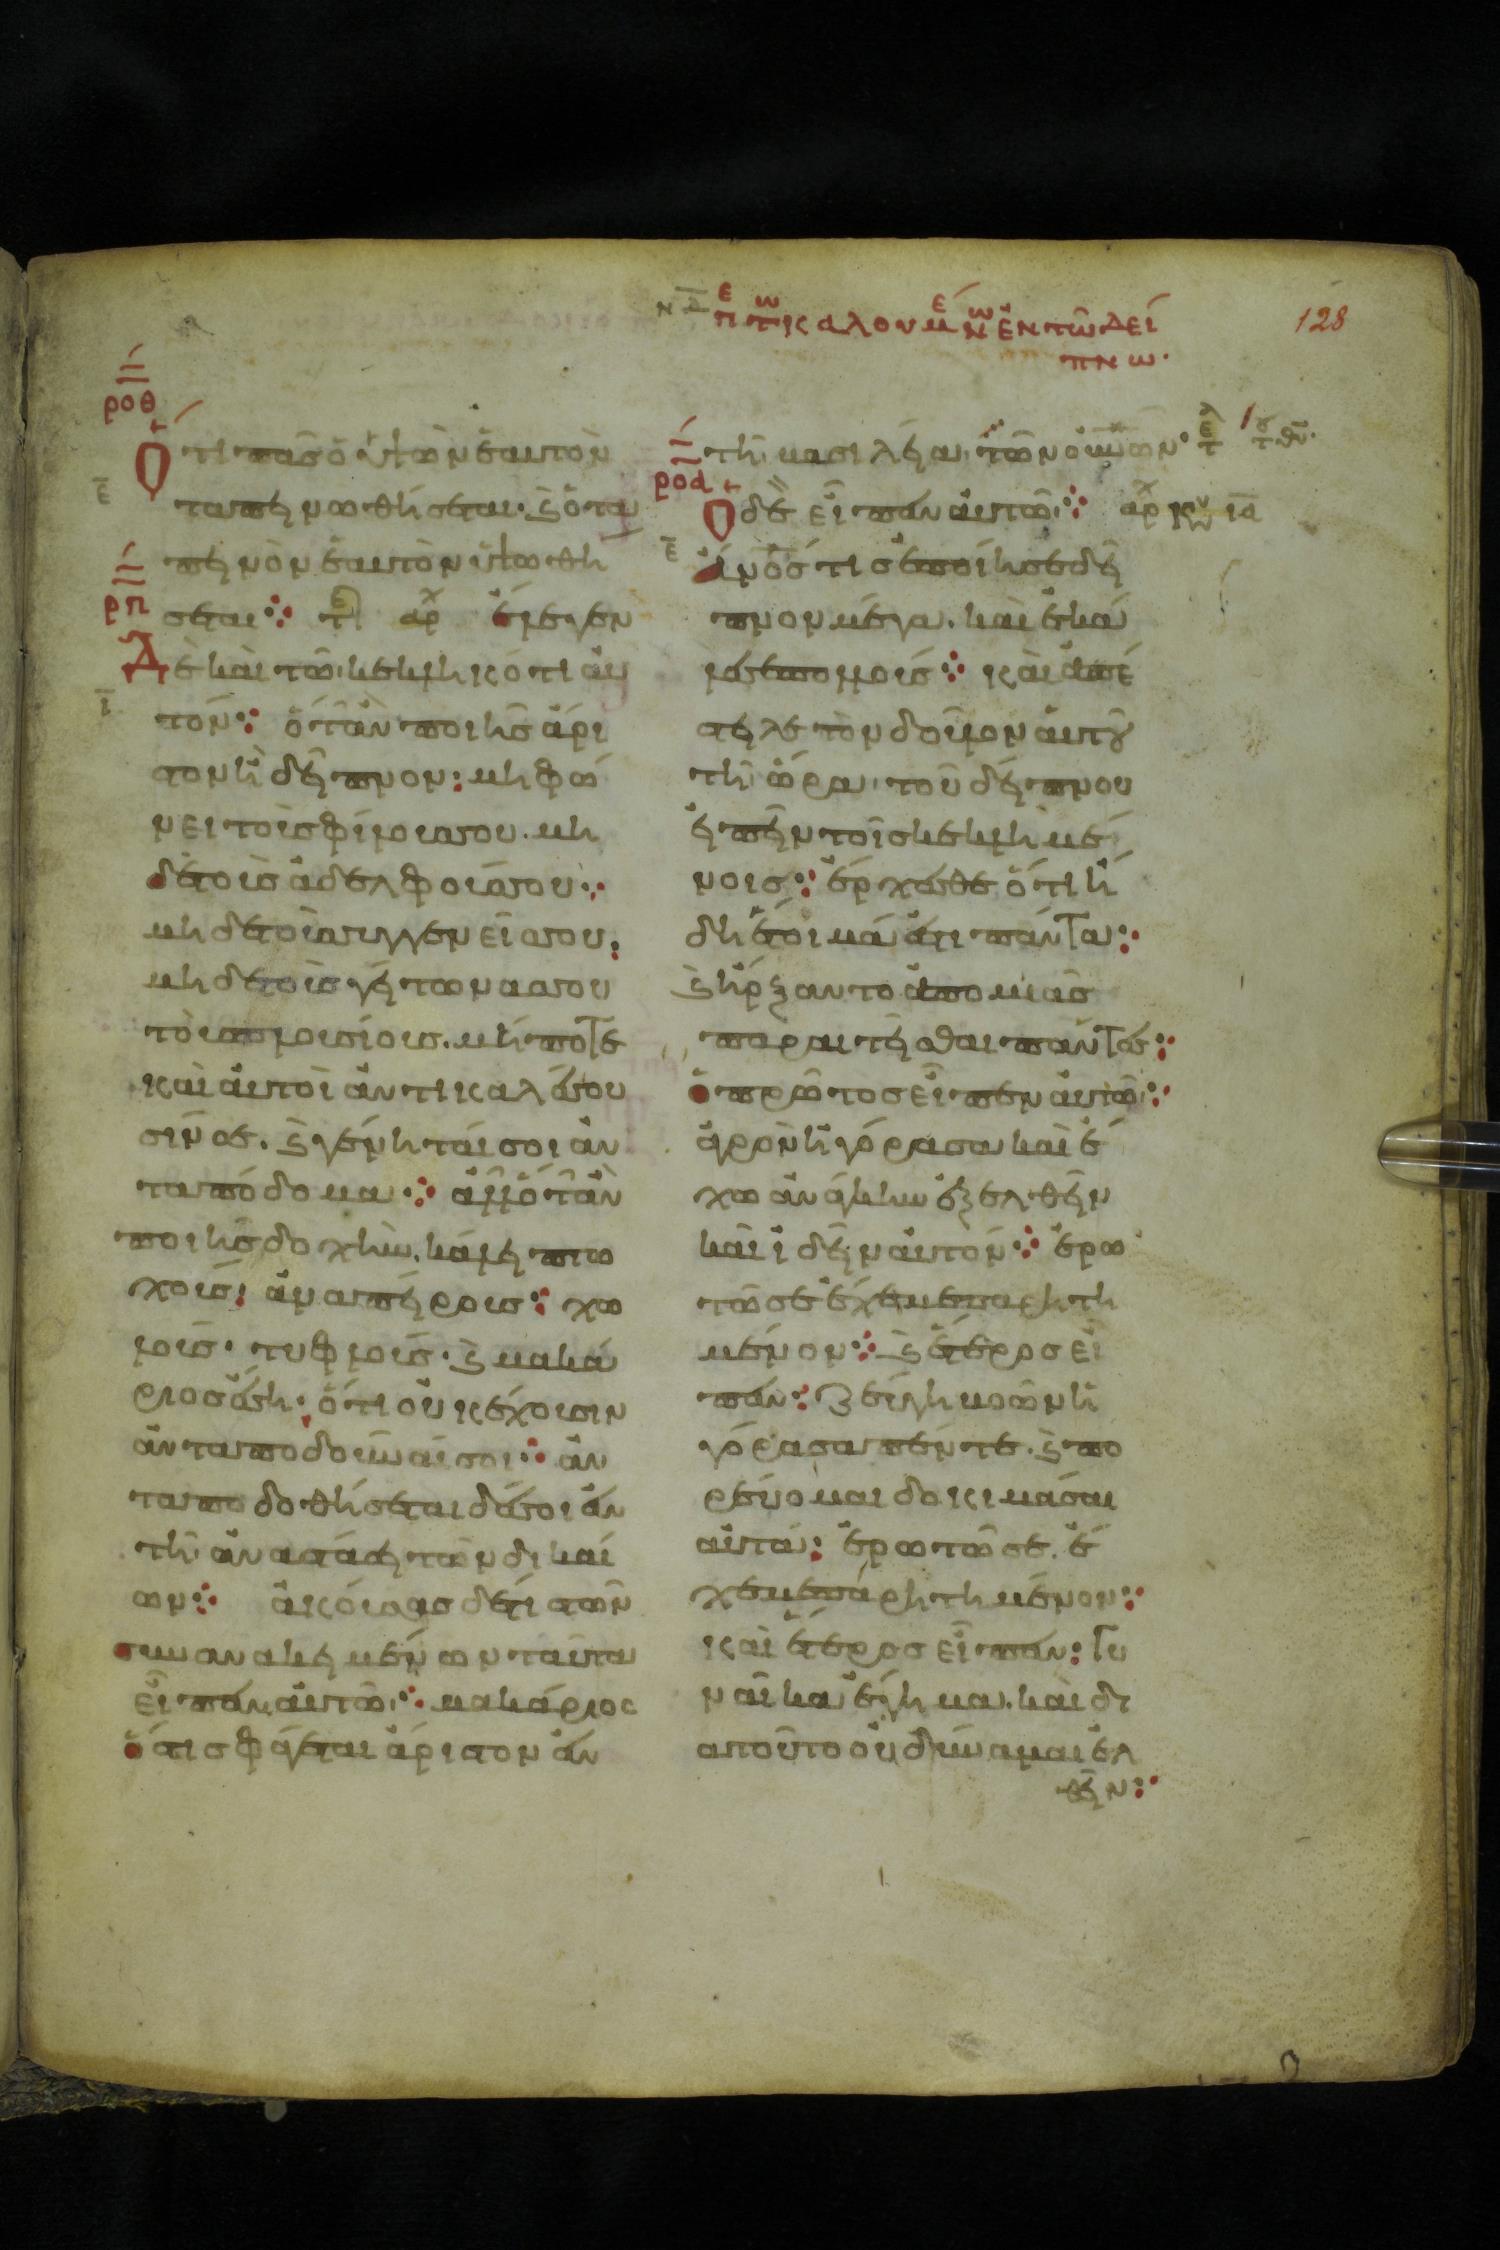 νδ περὶ τῶν καλουμένων ἐν τῶ δεί
πνω·
128
ροθ
Ὅτι πᾶσ ὁ ὑψῶν ἑαυτὸν
ε
ταπεινωθήσεται· καὶ ὁ τα
πεινὸν ἑαυτὸν ὑψωθή
ρπ
σεται: τε αρχ ἔλεγεν
Δὲ καὶ τῶ κεκληκότι αὐ
ι
τόν: ὅταν ποιῆσ ἄρι
στον ἢ δεῖπνον: μὴ φώ
νει τοὺσ φίλουσ σου· μη
δὲ τοὺσ ἀδελφούσ σου:
μὴ δὲ τοὺσ συγγενεῖσ σου:
μὴ δὲ τοὺσ γείτωνασ σου
τοὺσ πλουσίουσ· μήποτε
καὶ αὐτοὶ ἀντικαλέσου
σίν σε· καὶ γένηταί σοι ἀν
ταπόδομα: ἀλλ' ὅταν
ποιῆσ δοχὴν· κάλει πτω
χούσ: ἀναπείρουσ: χω
λούσ· τυφλούσ· καὶ μακά
ριοσ ἔση· ὅτι οὐκ ἔχουσιν
ἀνταποδοῦναί σοι: ἀν
ταποδοθήσεται δέ σοι ἐν
τῆ ἀναστάσει τῶν δικαί
ων: ἀκούσασ δέ τισ τῶν
συνανακειμένων ταῦτα
εἶπεν αὐτῶ: μακάριοσ
ὅστισ φάγεται ἄριστον ἐν
τῆ βασιλεία τῶν οὐνῶν· τε
ροα
Ὁ δὲ εἶπεν αὐτῶ: αρχ κυ ια
ε
ἄνοσ τισ ἐποίησε δεῖ
πνον μέγα· καὶ ἐκά
λεσε πολλούσ: καὶ ἀπέ
στειλε τὸν δοῦλον αὐτοῦ
τῆ ὥρα τοῦ δείπνου
εἰπεῖν τοῖσ κεκλημέ
νοισ: ἔρχεσθε ὅτι ἤ
δη ἕτοιμά ἐστι πάντα:
καὶ ἤρξαντο ἀπὸ μιᾶσ
παραιτεῖσθαι πάντεσ:
ὁ πρῶτοσ εἶπεν αὐτῶ:
ἀγρὸν ἠγόρασα καὶ ἔ
χω ἀνάγκην ἐξελθεῖν
καὶ ἰδεῖν αὐτόν: ἐρω
τῶ σε ἔχε με παρητη
μένον: καὶ ἕτεροσ εἶ
πεν: ζεύγη βοῶν ἠ
γόρασα πέντε· καὶ πο
ρεύομαι δοκιμάσαι
αὐτά: ἐρωτῶ σε· ἔ
χε με παρητημένον:
καὶ ἕτεροσ εἶπεν: Γυ
ναῖκα ἔγημα· καὶ δι
α τοῦτο οὐ δύναμαι ἐλ
θεῖν: